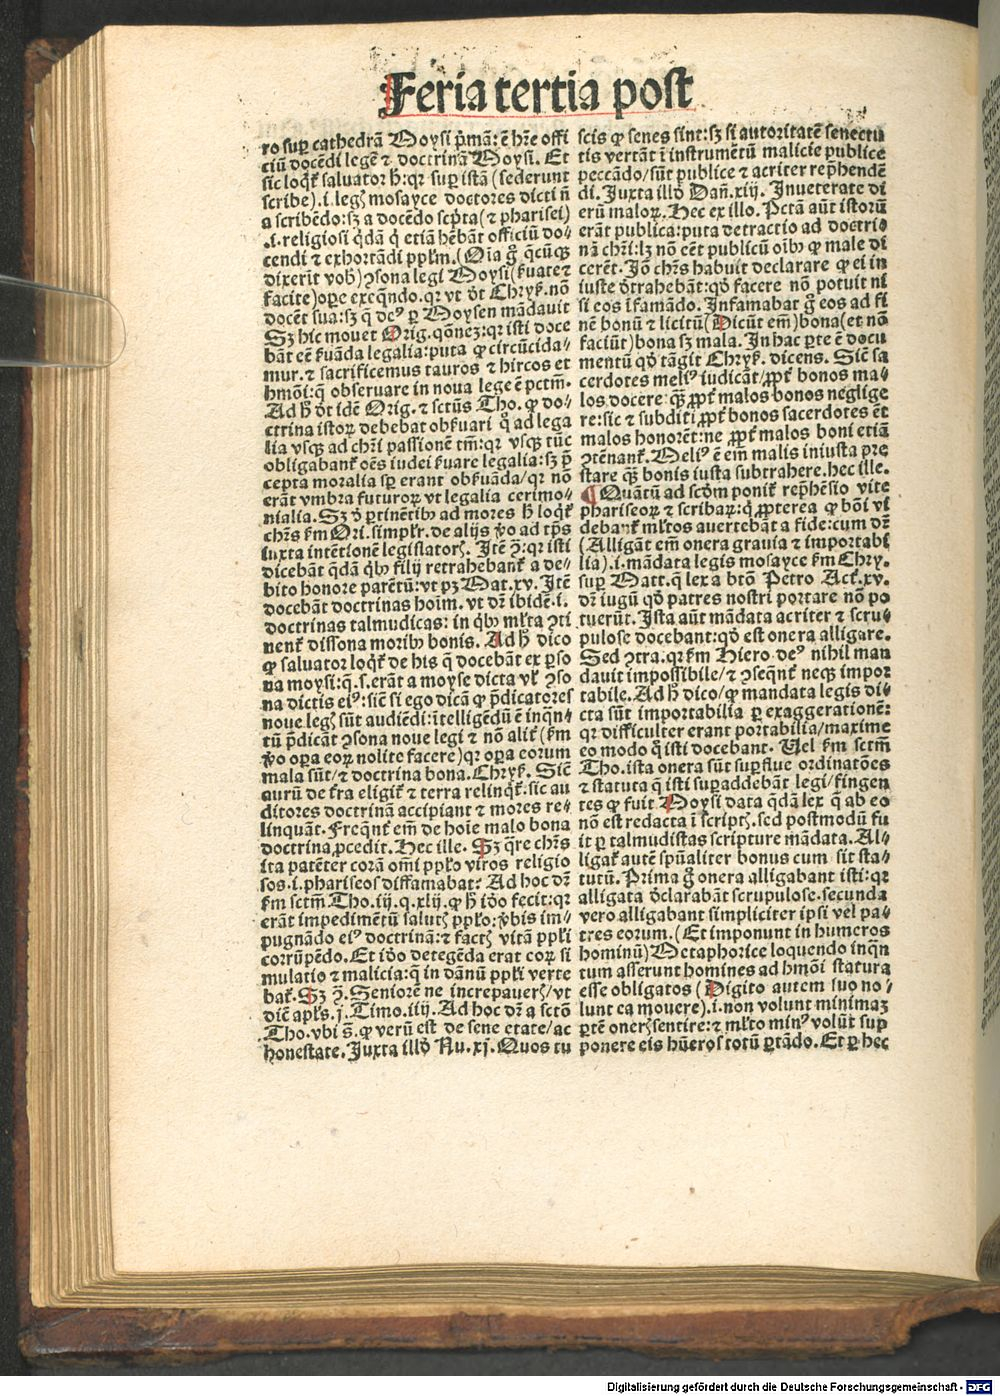 Feria tertia post
ro sup cathedrā Moysi p̄mā: ē hr̄e offi
ciū docēdi legē ⁊ doctrinā Moysi. Et
sic loq̄t̄ saluator h̄: qꝛ sup istā (sederunt
scribe) .i. legꝭ mosayce doctores dicti n̄
a scribēdo: sꝫ a docēdo sc̄pta (⁊ pharisei)
.i. religiosi q̄dā q̄ etiā hēbāt officiū do⸗
cendi ⁊ exhortādi pplm̄. (Oīa g̊ q̄cūqꝫ
dixerit vob) ꝯsona legi Moysi (ẜuate ⁊
facite) oꝑe exeq̄ndo. qꝛ vt d̄t Chryẜ. nō
docēt sua: sꝫ q̄ deꝰ ꝑ Moysen mādauit
Sꝫ hic mouet Orig. qōnez: qꝛ isti doce
bāt eē ẜuāda legalia: puta ꝙ circūcida⸗
mur. ⁊ sacrificemus tauros ⁊ hircos et
hmōi: q̄ obseruare in noua lege ē pctm̄.
Ad h̄ d̄t idē Orig. ⁊ sctūs Tho. ꝙ do⸗
ctrina istoꝝ debebat obẜuari q̊ ad lega
lia vsqꝫ ad chr̄i passionē tm̄: qꝛ vsqꝫ tūc
obligabant̄ oēs iudei ẜuare legalia: sꝫ p̄
cepta moralia sp̄ erant obẜuāda / qꝛ nō
erāt vmbra futuroꝝ vt legalia cerimo⸗
nialia. Sꝫ d̄ ꝑtinētibꝰ ad mores h̄ loq̄t̄
chr̄s ẜm Ori. simplr̄. de alijs v̄o ad tp̄s
iuxta intētionē legislatorꝭ. Itē ꝫ̄: qꝛ isti
dicebāt q̄dā qb̄ꝰ filij retrahebant̄ a de⸗
bito honore parētū: vt pꝫ Mat. xv. Itē
docebāt doctrinas hoīm. vt dr̄ ibidē .i.
doctrinas talmudicas: in qb̄ꝰ ml̄ta ꝯti
nent̄ dissona moribꝰ bonis. Ad h̄ dico
ꝙ saluator loq̄t̄ de his q̄ docebāt ex ꝑso
na moysi: q̄.s. erāt a moyse dicta vl̄ ꝯso
na dictis eiꝰ: sic̄ si ego dicā ꝙ p̄dicatores
noue legꝭ sūt audiēdi: ītelligēdū ē inq̄n⸗
tū p̄dicāt ꝯsona noue legi ⁊ nō alit̄ (ẜm
v̄o oꝑa eoꝝ nolite facere) qꝛ oꝑa eorum
mala sūt / ⁊ doctrina bona. Chryẜ. Sic̄
aurū de t̄ra eligit̄ ⁊ terra relinq̄t̄: sic au
ditores doctrinā accipiant ⁊ mores re⸗
linquāt. Freq̄nt̄ em̄ de hoīe malo bona
doctrina ꝓcedit. Hec ille. Sꝫ q̄re chr̄s
ita patēter corā om̄i pplo viros religio
sos .i. phariseos diffamabat? Ad hoc dr̄
ẜm sctm̄ Tho. iij. q. xlij. ꝙ h̄ iō fecit: qꝛ
erāt impedimētū salutꝭ pplo: v̄bis im⸗
pugnādo eiꝰ doctrinā: ⁊ factꝭ vitā ppli
corrūpēdo. Et iō detegēda erat coꝝ si
mulatio ⁊ malicia: q̄ in dānū ppli verte
bat̄. Sꝫ ꝫ̄. Seniorē ne increpauerꝭ / vt
dic̄ apl̄s. j. Timo. iiij. Ad hoc dr̄ a sctō
Tho. vbi s̄. ꝙ verū est de sene etate / ac
honestate. Iuxta illō Nu. xj. Quos tu
scis ꝙ senes sint: sꝫ si autoritatē senectu
tis vertāt ī instrumētū malicie publice
peccādo / sūt publice ⁊ acriter rep̄hendē
di. Iuxta illō Dan̄. xiij. Inueterate di
erū maloꝝ. Hec ex illo. Pctā aūt istorū
erāt publica: puta detractio ad doctri⸗
nā chr̄i: lꝫ nō eēt publicū oībꝰ ꝙ male di
cerēt. Iō chr̄s habuit declarare ꝙ ei in
iuste d̄trahebāt: qd̄ facere nō potuit ni
si eos īfamādo. Infamabat g̊ eos ad fi
nē bonū ⁊ licitū (Dicūt em̄) bona (et nō
faciūt) bona sꝫ mala. In hac ꝑte ē docu
mentū qd̄ tāgit Chryẜ. dicens. Sic̄ sa
cerdotes meliꝰ iudicāt / ꝓpt̄ bonos ma⸗
los docere q̄ꝫ ꝓpt̄ malos bonos neglige
re: sic ⁊ subditi ꝓpt̄ bonos sacerdotes ēt
malos honorēt: ne ꝓpt̄ malos boni etiā
ꝯtēnant̄. Meliꝰ ē em̄ malis iniusta pre
stare q̄ꝫ bonis iusta subtrahere. hec ille.
¶ Quātū ad scd̄m ponit̄ rep̄hēsio vite
phariseoꝝ ⁊ scribaꝝ: q̄ ꝓpterea ꝙ bōi vi
debant̄ ml̄tos auertebāt a fide: cum dr̄
(Alligāt em̄ onera grauia ⁊ importabi
lia) .i. mādata legis mosayce ẜm Chry.
sup Matt. q̄ lex a btō Petro Act̄. xv.
dr̄ iugū qd̄ patres nostri portare nō po
tuerūt. Ista aūt mādata acriter ⁊ scru⸗
pulose docebant: qd̄ est onera alligare.
Sed ꝯtra. qꝛ ẜm Hiero deꝰ nihil man
dauit impossibile / ⁊ ꝯseq̄nt̄ neqꝫ impor
tabile. Ad h̄ dico / ꝙ mandata legis di⸗
cta sūt importabilia ꝑ exaggerationē:
qꝛ difficulter erant portabilia / maxime
eo modo q̊ isti docebant. Vel ẜm sctm̄
Tho. ista onera sūt suꝑflue ordinatōes
⁊ statuta q̄ isti suꝑaddebāt legi / fingen
tes ꝙ fuit Moysi data q̄dā lex q̄ ab eo
nō est redacta ī scriptꝭ. sed postmodū fu
it ꝑ talmudistas scripture mādata. Al⸗
ligat̄ autē spūaliter bonus cum sit sta⸗
tutū. Prima g̊ onera alligabant isti: qꝛ
alligata d̄clarabāt scrupulose. secunda
vero alligabant simpliciter ipsi vel pa⸗
tres eorum. (Et imponunt in humeros
hominū) Metaphorice loquendo inq̄n
tum asserunt homines ad hmōi statura
esse obligatos (Digito autem suo no⸗
lunt ea mouere) .i. non volunt minimaꝫ
ꝑtē onerꝭ sentire: ⁊ ml̄to minꝰ volūt sup
ponere eis hūeros totū ꝑtādo. Et ꝑ hec
Digitalisierung gefördert durch die Deutsche Forschungsgemeinschaft - DFG